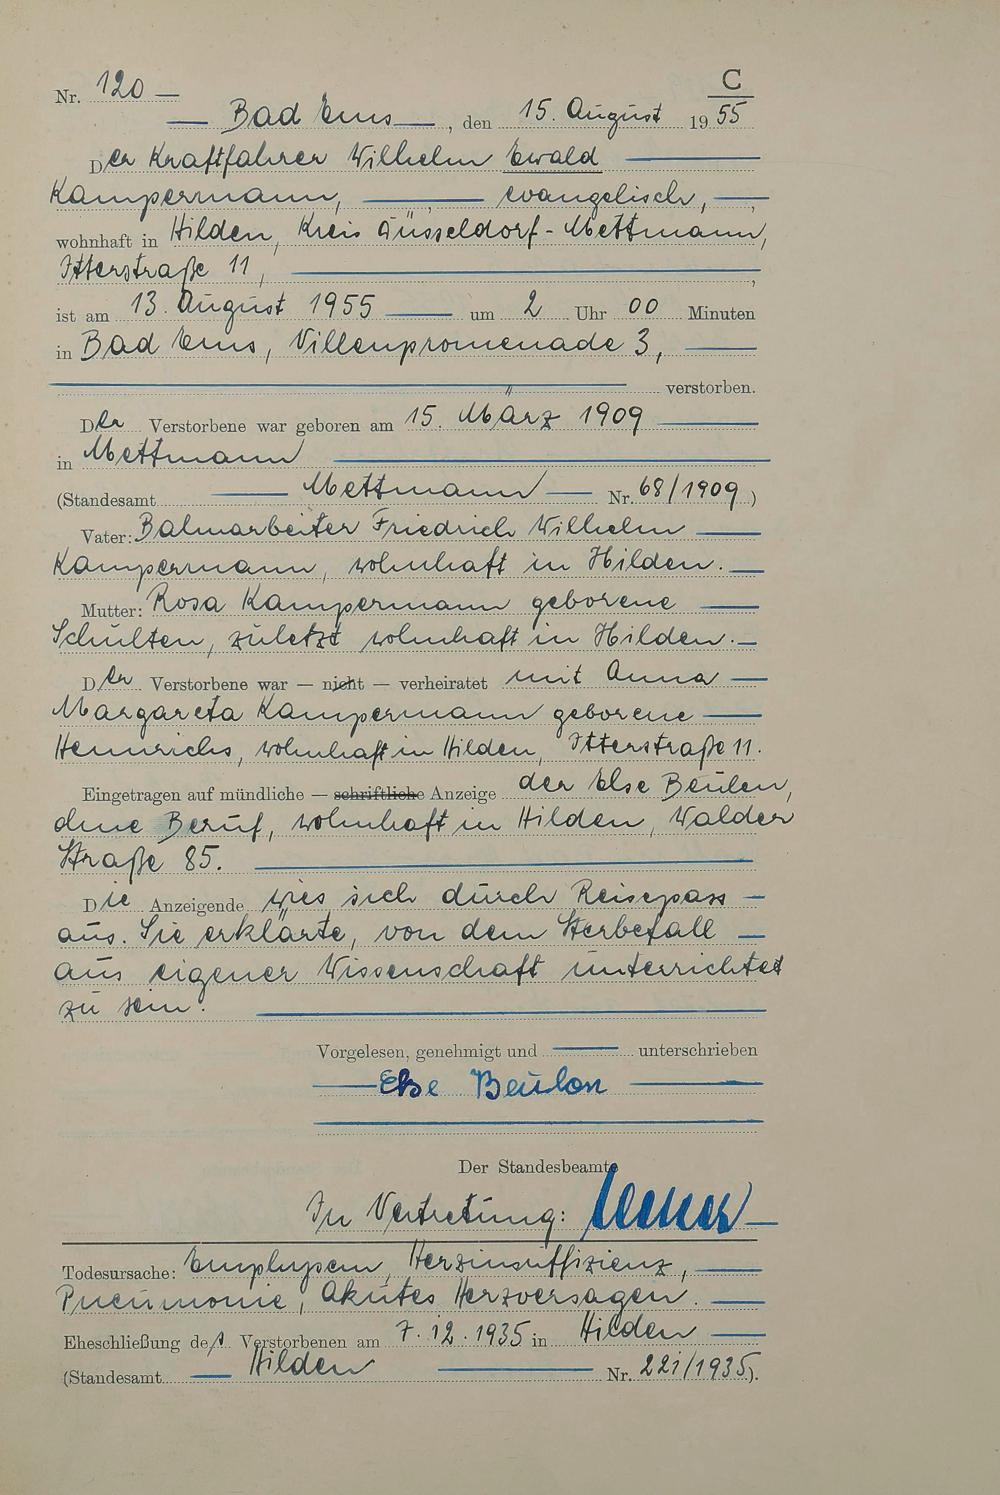 C
Nr. 120 —
— Bad Ems —, den 15. August 1955
Der Kraftfahrer Wilhelm Ewald —
Kampermann, — evangelisch, —,
wohnhaft in Hilden, Kreis Düsseldorf-Mettmann,
Itterstraße 11, —,
ist am 13. August 1955 — um 2 Uhr 00 Minuten
in Bad Ems, Villenpromenade 3, —
— verstorben.
Der Verstorbene war geboren am 15. März 1909 —
in Mettmann —
(Standesamt — Mettmann — Nr. 68/1909.)
Vater: Bahnarbeiter Friedrich Wilhelm —
Kampermann, wohnhaft in Hilden. —
Mutter: Rosa Kampermann geborene —
Schulten, zuletzt wohnhaft in Hilden. —
Der Verstorbene war — nicht — verheiratet mit Anna —
Margareta Kampermann geborene —
Heinrichs, wohnhaft in Hilden, Itterstraße 11.
Eingetragen auf mündliche — schriftliche Anzeige der Else Beulen,
ohne Beruf, wohnhaft in Hilden, Walder
Straße 85. —
Die Anzeigende wies sich durch Reisepass —
aus. Sie erklärte, von dem Sterbefall —
aus eigener Wissenschaft unterrichtet
zu sein. —
Vorgelesen, genehmigt und — unterschrieben
— Else Beulen —
Der Standesbeamte
In Vertretung:
Todesursache: Emphysem, Herzinsuffizienz, —
Pneumonie, Akutes Herzversagen. —
Eheschließung des Verstorbenen am 7.12.1935 in Hilden —
(Standesamt — Hilden — Nr. 221/1935).